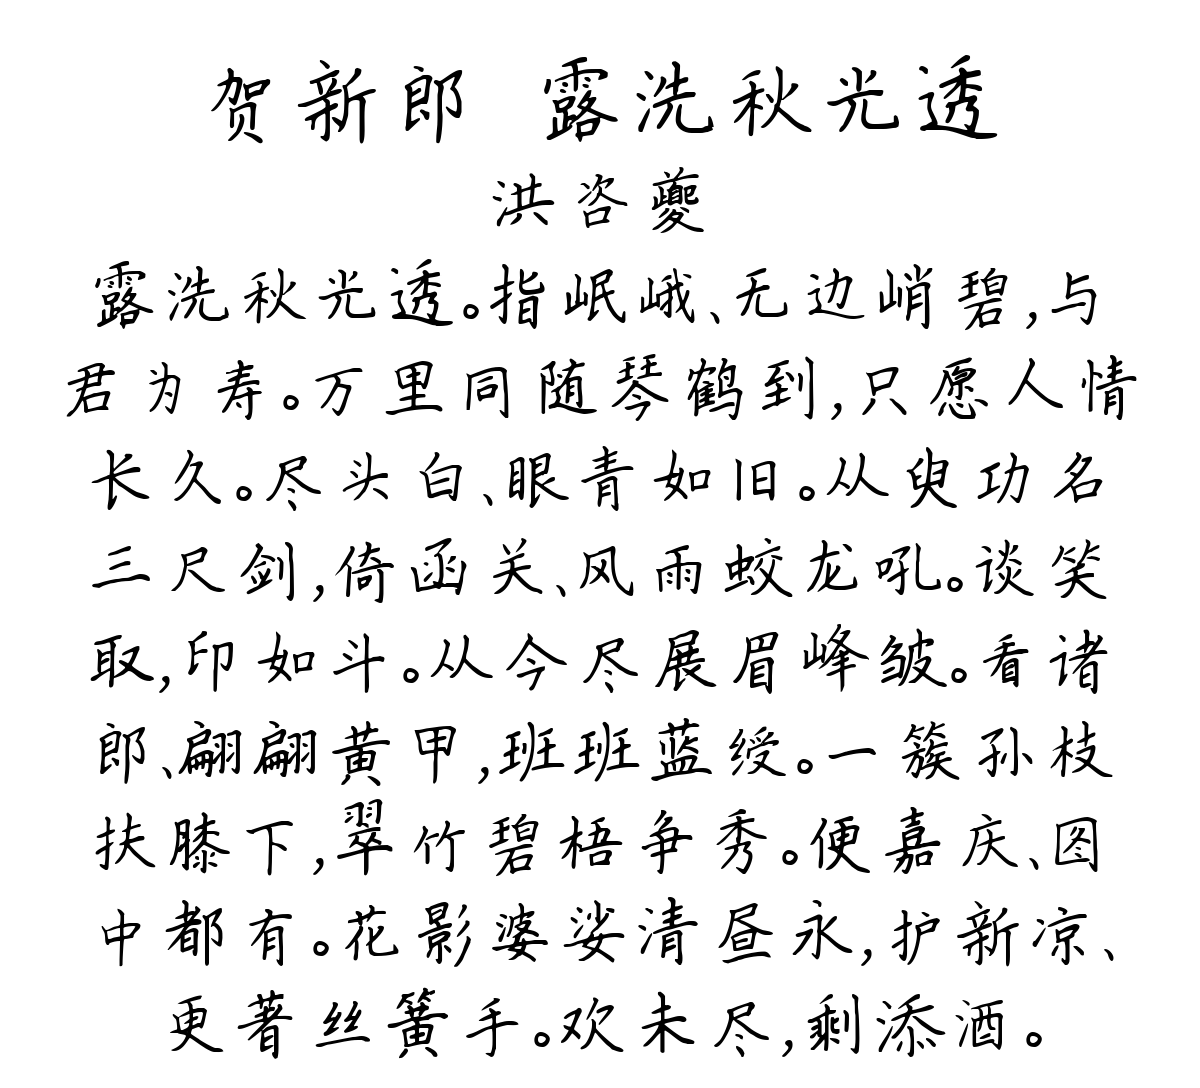 贺新郎 露洗秋光透
洪咨夔
露洗秋光透。指岷峨、无边峭碧,与
君为寿。万里同随琴鹤到,只愿人情
长久。尽头白、眼青如旧。从臾功名
三尺剑,倚函关、风雨蛟龙吼。谈笑
取,印如斗。从今尽展眉峰皱。看诸
郎、翩翩黄甲,班班蓝绶。一簇孙枝
扶膝下,翠竹碧梧争秀。便嘉庆、图
中都有。花影婆娑清昼永,护新凉、
更著丝簧手。欢未尽,剩添酒。